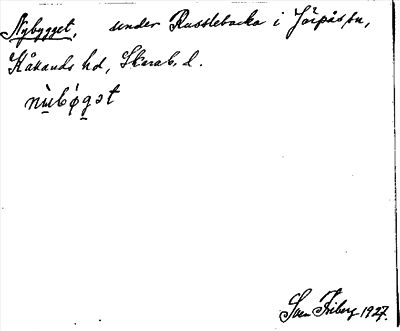 Nybygget, under Russlebacka i Järpås sn,
Kåkands hd, Skarab. l.
nỳbǿgət
Sven Friberg 1927.